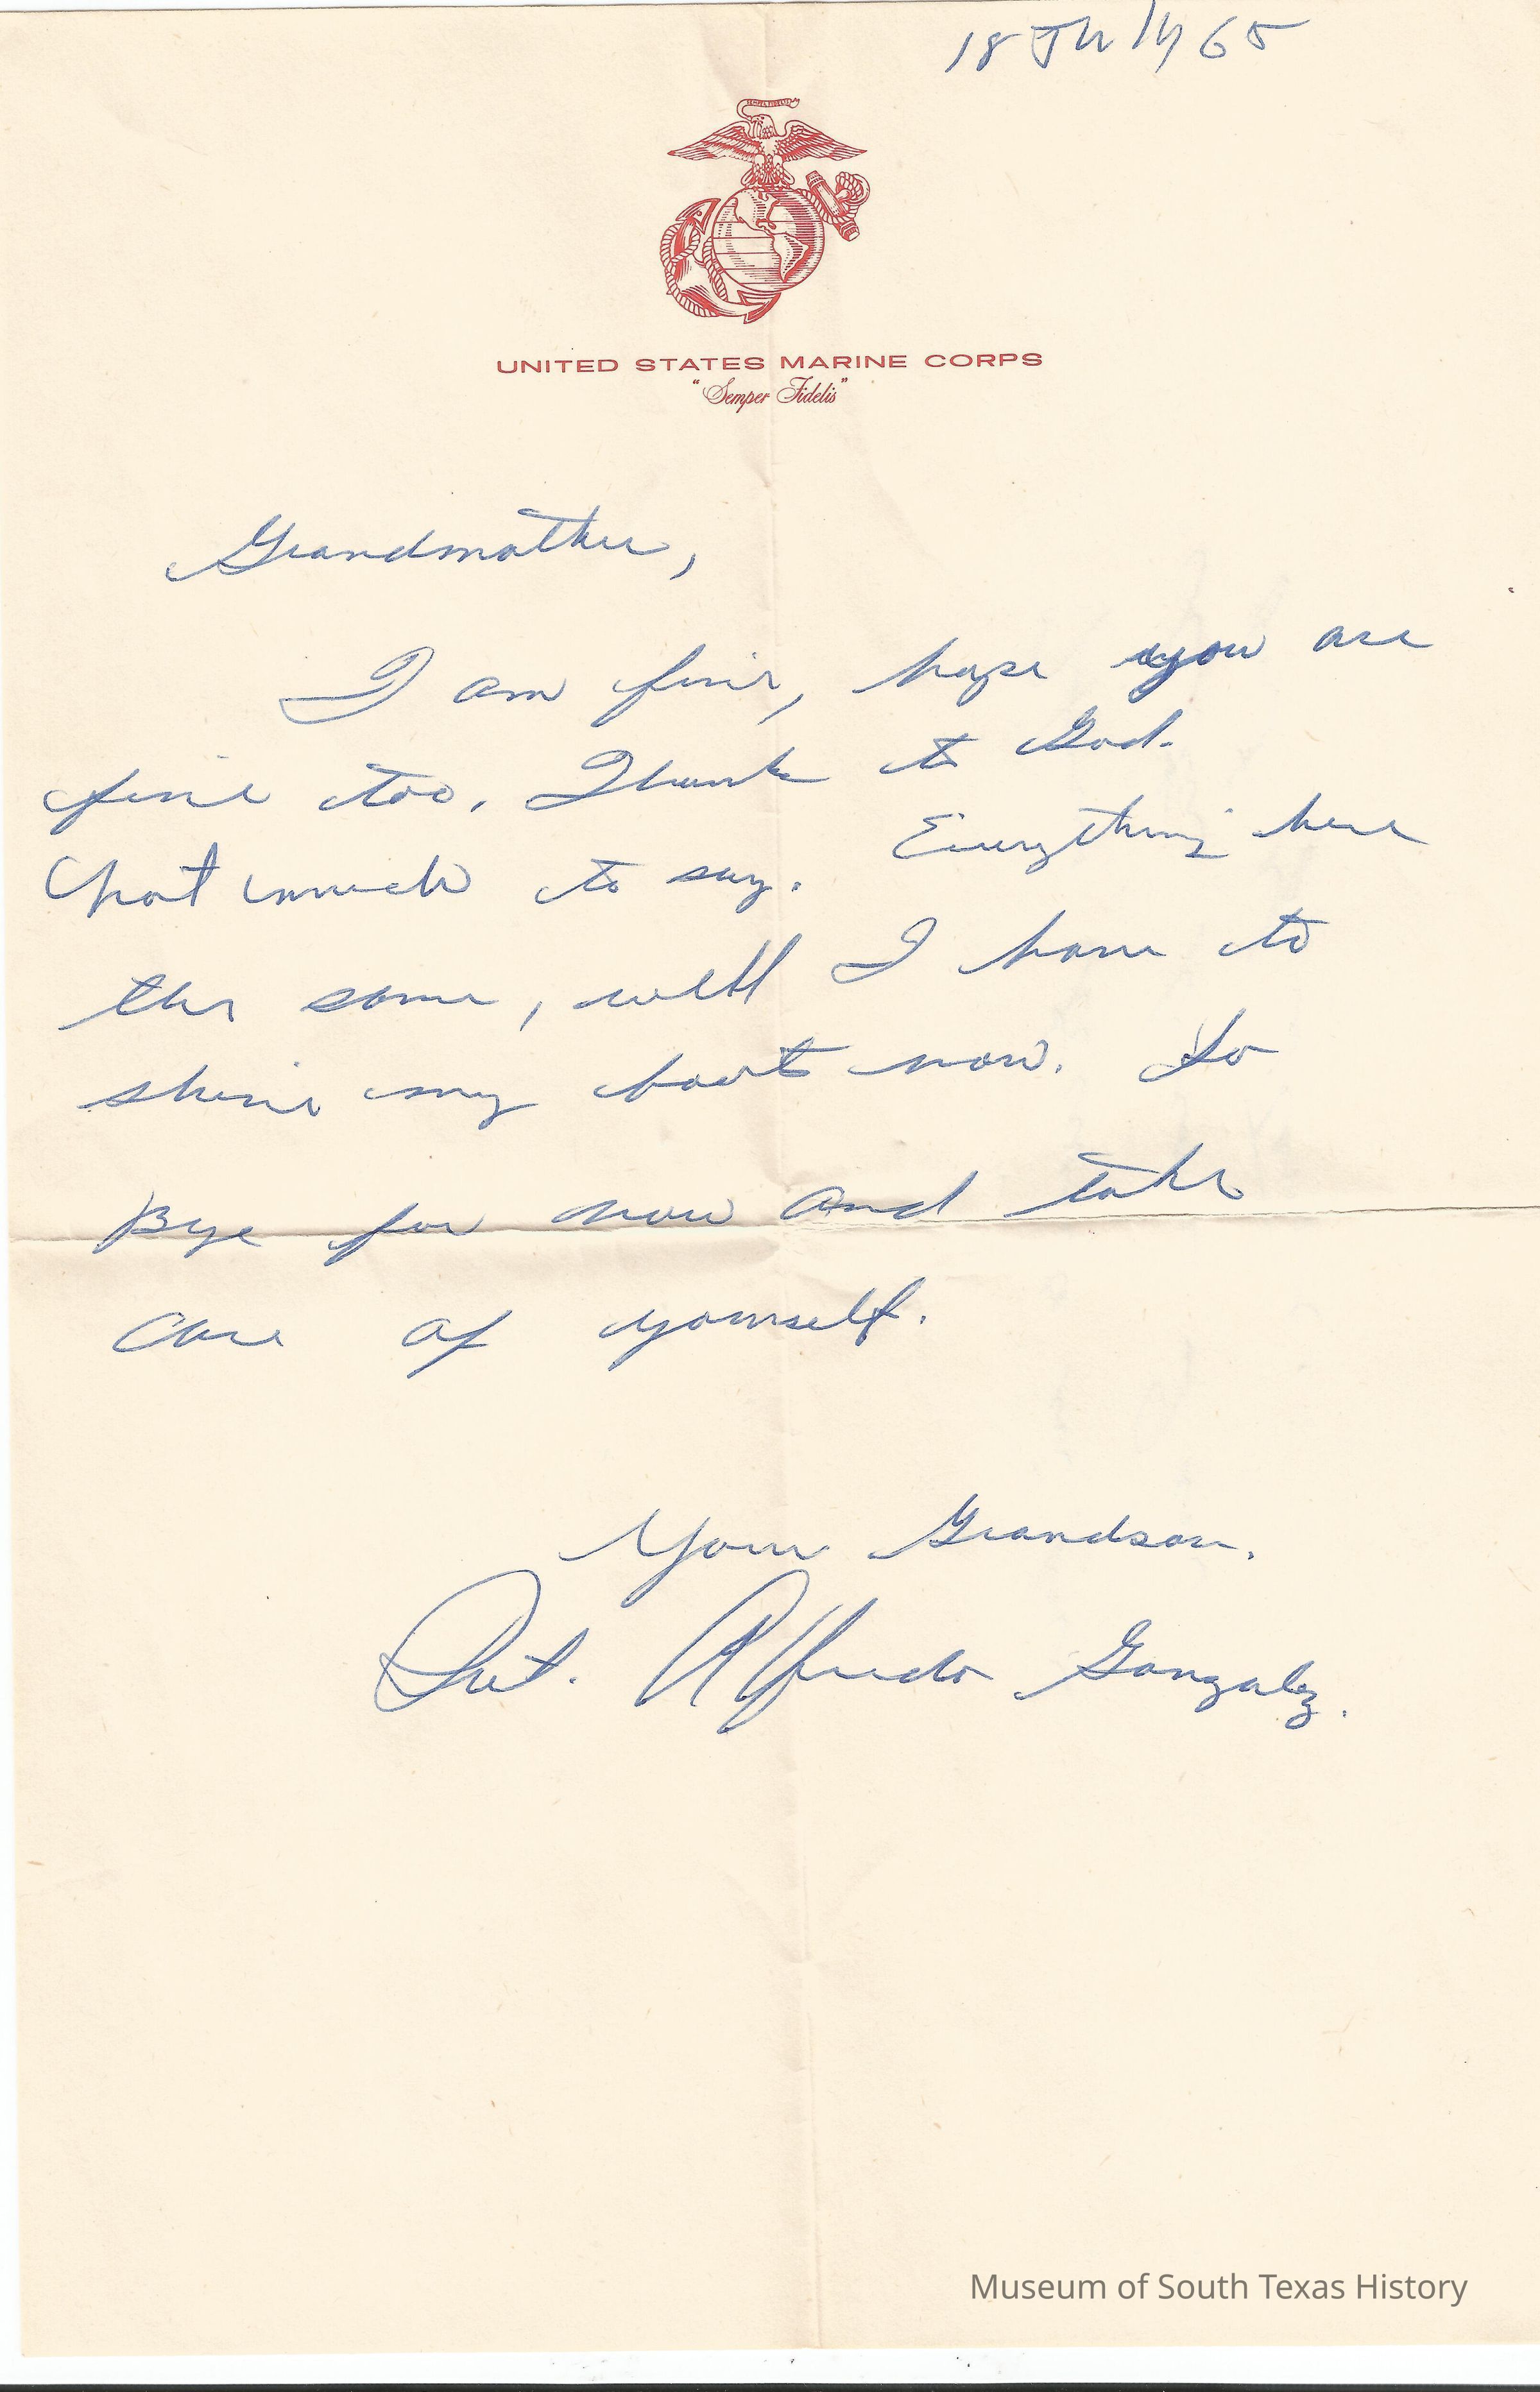 18 July 65
SEMPER FIDELIS
UNITED STATES MARINE CORPS
"Semper Fidelis"
Grandmother,
I am fine, hope you are
fine too. Thank to God.
Not much to say. Everything here
the same, well I have to
shine my boot now. So
Bye for now and take
Care of yourself.
Your Grandson.
Pvt. Alfredo Gonzalez.
Museum of South Texas History